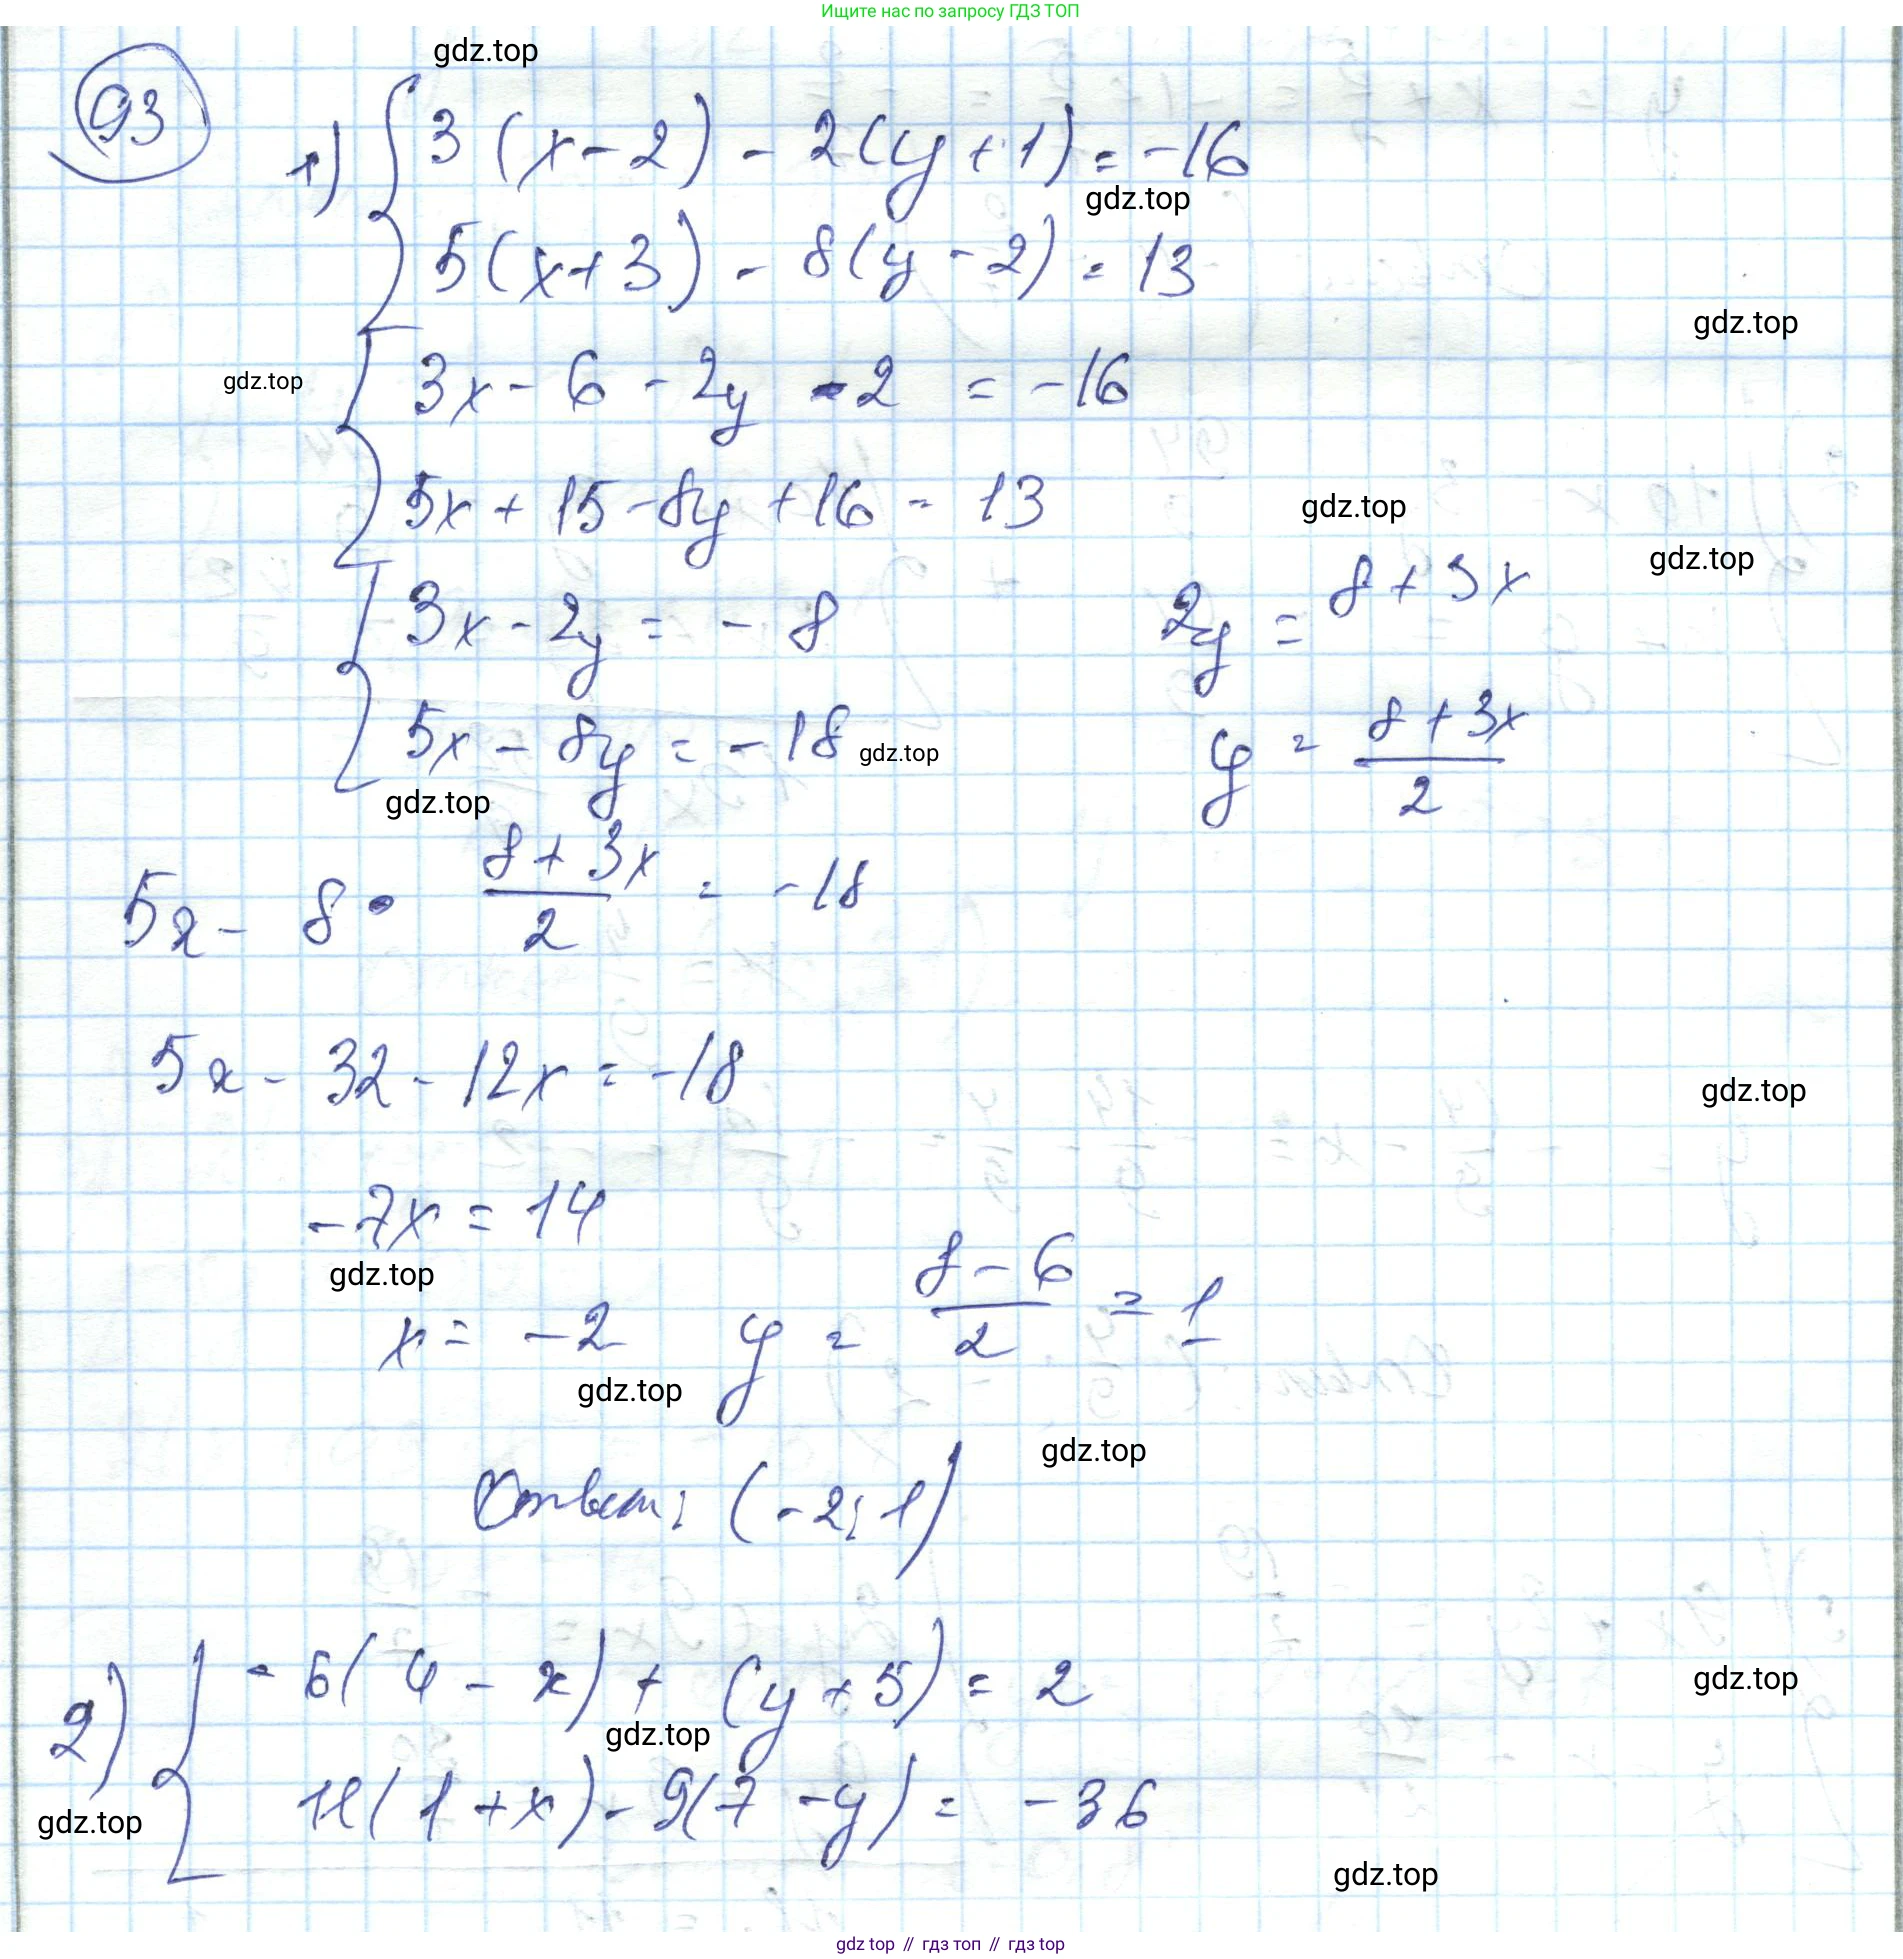 Ищите нас по запросу ГДЗ ТОП
gdz.top
93
1) { 3(x-2) - 2(y+1) = -16
gdz.top
5(x+3) - 8(y-2) = 13
gdz.top
gdz.top
{ 3x - 6 - 2y - 2 = -16
5x + 15 - 8y + 16 = 13
gdz.top
gdz.top
{ 3x - 2y = -8
2y = 8 + 3x
5x - 8y = -18
gdz.top
y = (8 + 3x)/2
gdz.top
5x - 8 · (8 + 3x)/2 = -18
5x - 32 - 12x = -18
gdz.top
-7x = 14
gdz.top
x = -2 y = (8 - 6)/2 = 1
gdz.top
gdz.top
Ответ: (-2; 1)
2) { -6(4 - x) + (y + 5) = 2
gdz.top
gdz.top
11(1 + x) - 9(7 - y) = -36
gdz.top
gdz.top
gdz top // гдз топ // гдз top